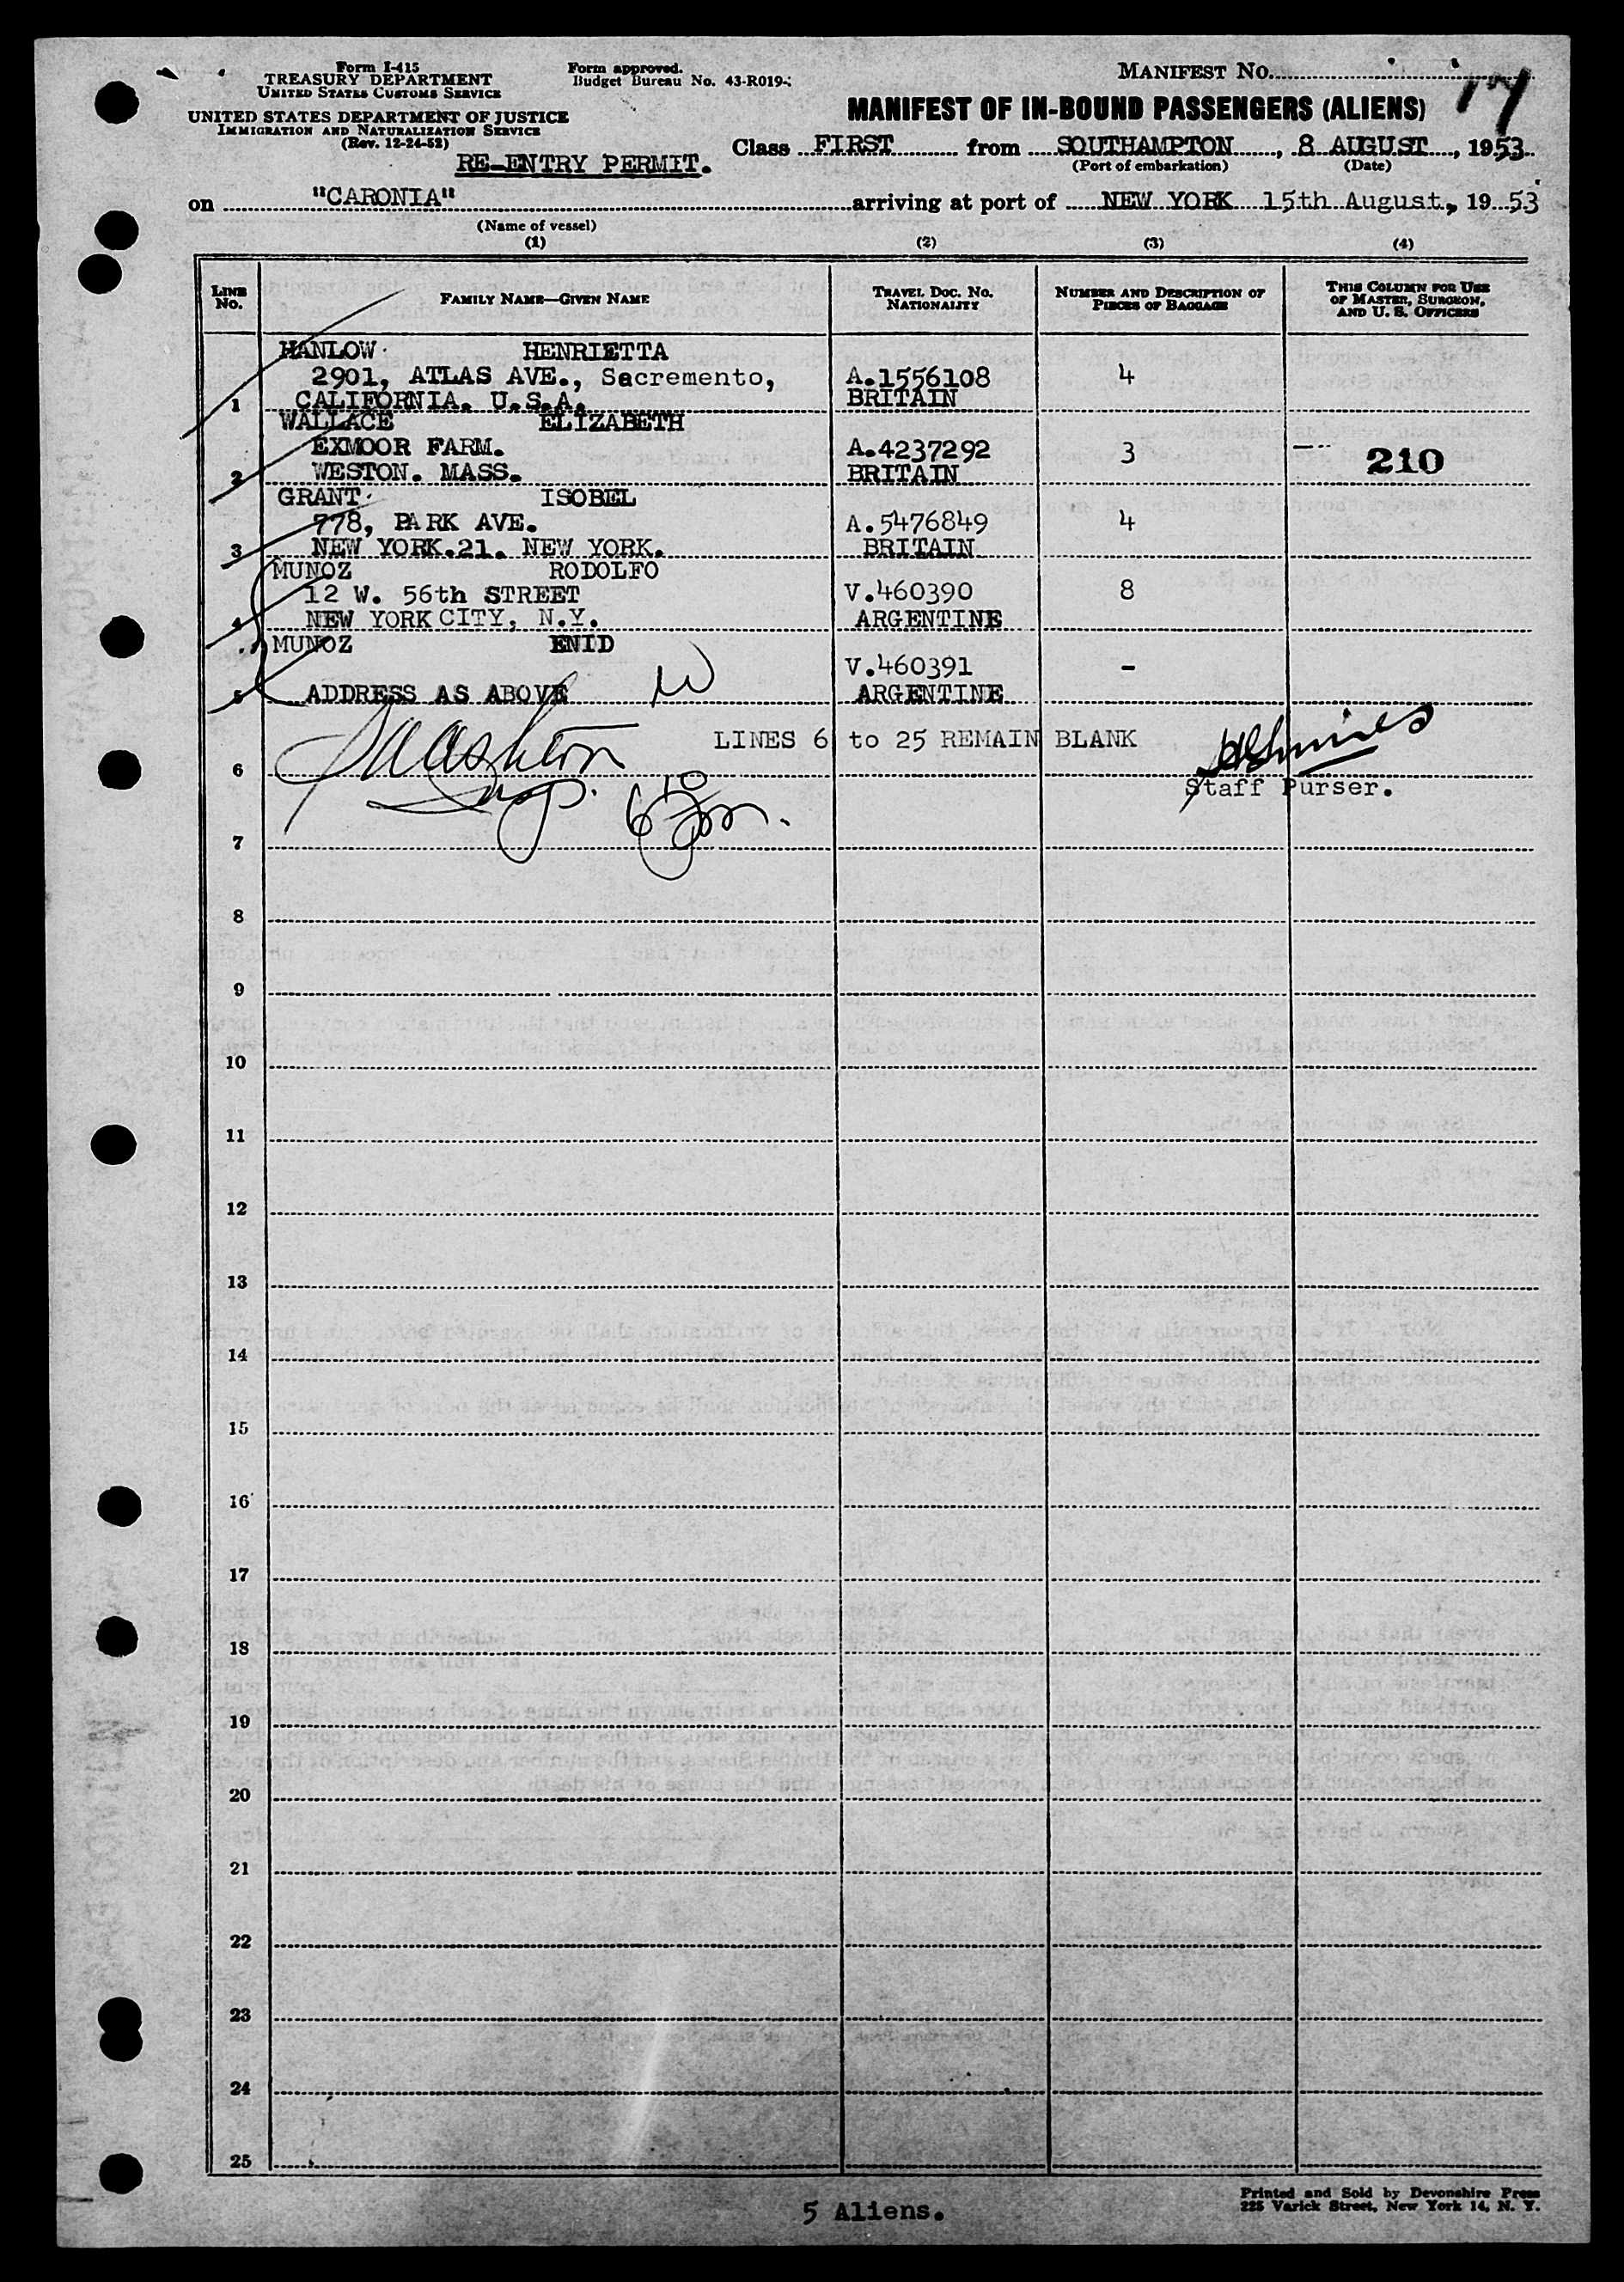 Form I-415
TREASURY DEPARTMENT
UNITED STATES CUSTOMS SERVICE
UNITED STATES DEPARTMENT OF JUSTICE
IMMIGRATION AND NATURALIZATION SERVICE
(Rev. 12-24-52)
Form approved.
Budget Bureau No. 43-R019-
MANIFEST NO.
17
MANIFEST OF IN-BOUND PASSENGERS (ALIENS)
RE-ENTRY PERMIT.
Class FIRST from SOUTHAMPTON, 8 AUGUST, 1953
(Port of embarkation) (Date)
on "CARONIA" arriving at port of NEW YORK 15th August, 1953
(Name of vessel)
(1) (2) (3) (4)
LINE NO. FAMILY NAME—GIVEN NAME TRAVEL DOC. NO. NATIONALITY NUMBER AND DESCRIPTION OF PIECES OF BAGGAGE THIS COLUMN FOR USE OF MASTER, SURGEON, AND U. S. OFFICERS
HANLOW HENRIETTA
2901, ATLAS AVE., Sacremento, A.1556108 4
1 CALIFORNIA. U.S.A. BRITAIN
WALLACE ELIZABETH
EXMOOR FARM. A.4237292 3 210
2 WESTON. MASS. BRITAIN
GRANT ISOBEL
778, PARK AVE. A.5476849 4
3 NEW YORK.21. NEW YORK. BRITAIN
MUNOZ RODOLFO
12 W. 56th STREET V.460390 8
4 NEW YORK CITY, N.Y. ARGENTINE
MUNOZ ENID
V.460391 -
5 ADDRESS AS ABOVE ARGENTINE
LINES 6 to 25 REMAIN BLANK
6
Staff Purser.
7
8
9
10
11
12
13
14
15
16
17
18
19
20
21
22
23
24
25
5 Aliens.
Printed and Sold by Devonshire Press
225 Varick Street, New York 14, N. Y.